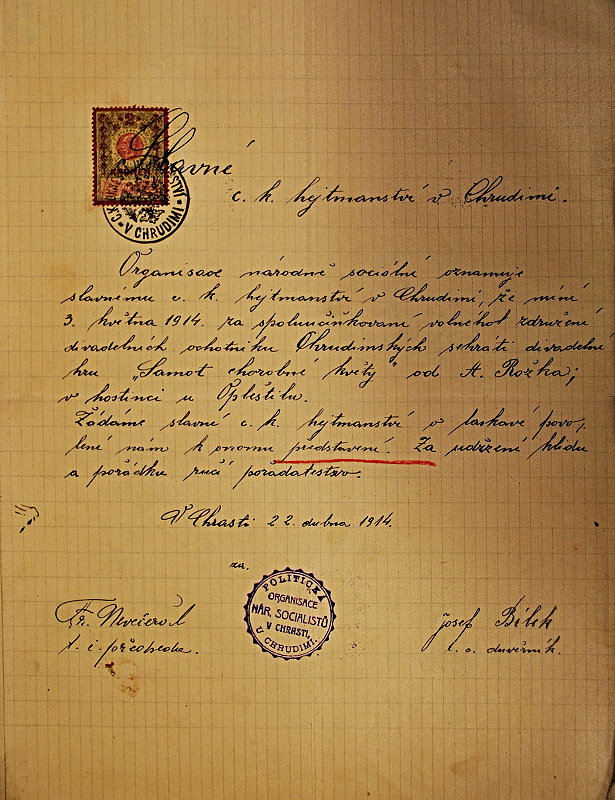 2
Slavné
C.K. V CHRUDIMI
c. k. hejtmanství v Chrudimi.
Organisace národně sociální oznamuje
slavnému c. k. hejtmanství v Chrudimi, že míní
3. května 1914. za spoluúčinkování volného združení
divadelních ochotníku Chrudimských sehráti divadelní
hru "Samot chorobné květy" od A. Rožka;
v hostinci u Opleštilu.
Žádáme slavné c. k. hejtmanství o laskavé povo-
lené nám k onomu představení. Za udržení klidu
a pořádku ručí pořadatelstvo.
V Chrasti 22. dubna 1914.
za.
POLITICKÁ
ORGANISACE
NÁR. SOCIALISTŮ
V CHRASTI,
U CHRUDIMI.
Fr.
t. č. předseda.
Josef Bílek
t. č. duvěrník.